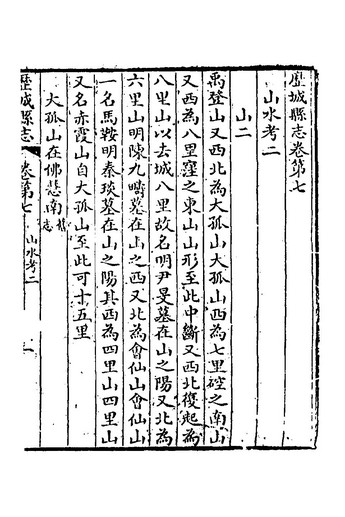 歷城縣志卷第七
山水考二
山二
禹登山又西北為大孤山大孤山西為七里𥔲之南山
又西為八里窪之東山山形至此中斷又西北復起為
八里山以去城八里故名明尹旻墓在山之陽又北為
六里山明陳九疇墓在山之西又北為會仙山會仙山
一名馬鞍明秦琰墓在山之陽其西為四里山四里山
又名赤霞山自大孤山至此可十五里
大孤山在佛慧南舊志
歷城縣志 卷第七 山水考二 一